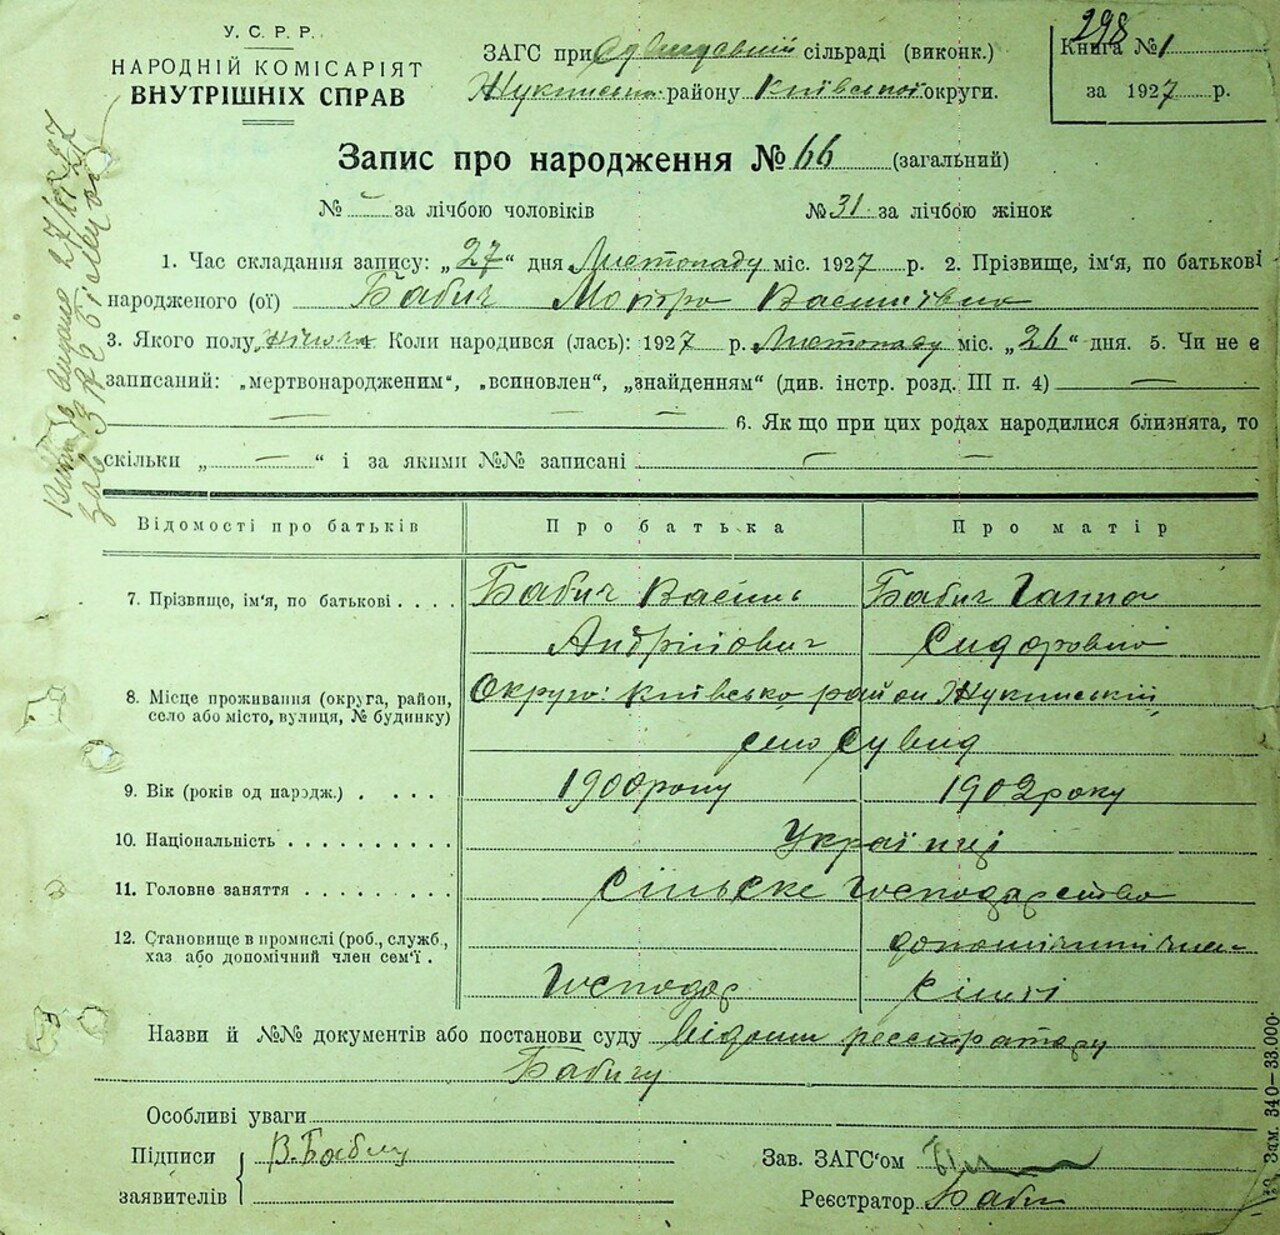 У. С. Р. Р.
НАРОДНІЙ КОМІСАРІЯТ
ВНУТРІШНІХ СПРАВ
ЗАГС при сільраді (виконк.)
району Київської округи.
298
Книга №1
за 1927 р.
Запис про народження № 66 (загальний)
№ за лічбою чоловіків № 31 за лічбою жінок
1. Час складання запису: „27“ дня Листопаду міс. 1927 р. 2. Прізвище, ім'я, по батькові
народженого (ої) Бабич Мотря Василівна
3. Якого полу жіноч. 4 Коли народився (лась): 1927 р. Листопаду міс. „26“ дня. 5. Чи не є
записаний: „мертвонародженим“, „всиновлен“, „знайденням“ (див. інстр. розд. III п. 4) —
— — — 6. Як що при цих родах народилися близнята, то
скільки „ — “ і за якими №№ записані — —
Відомості про батьків Про батька Про матір
7. Прізвище, ім'я, по батькові . . . . Бабич Василь Бабич Ганна
Андрійович Сидоровна
8. Місце проживання (округа, район, Округа: Київська район Жукинський
село або місто, вулиця, № будинку) село Сувид
9. Вік (років од народж.) . . . . 1900 року 1902 року
10. Національність . . . . . . . . . . Українці
11. Головне заняття . . . . . . . . Сільске Господарство
12. Становище в промислі (роб., служб.,
хаз або допомічний член сем'ї .
Господар сімьї
Назви й №№ документів або постанови суду відомі реєстратору
Бабичу
Особливі уваги
Підписи
заявителів
В. Бабич
Зав. ЗАГС'ом
Реєстратор Бабич
Зам. 340—33.000.